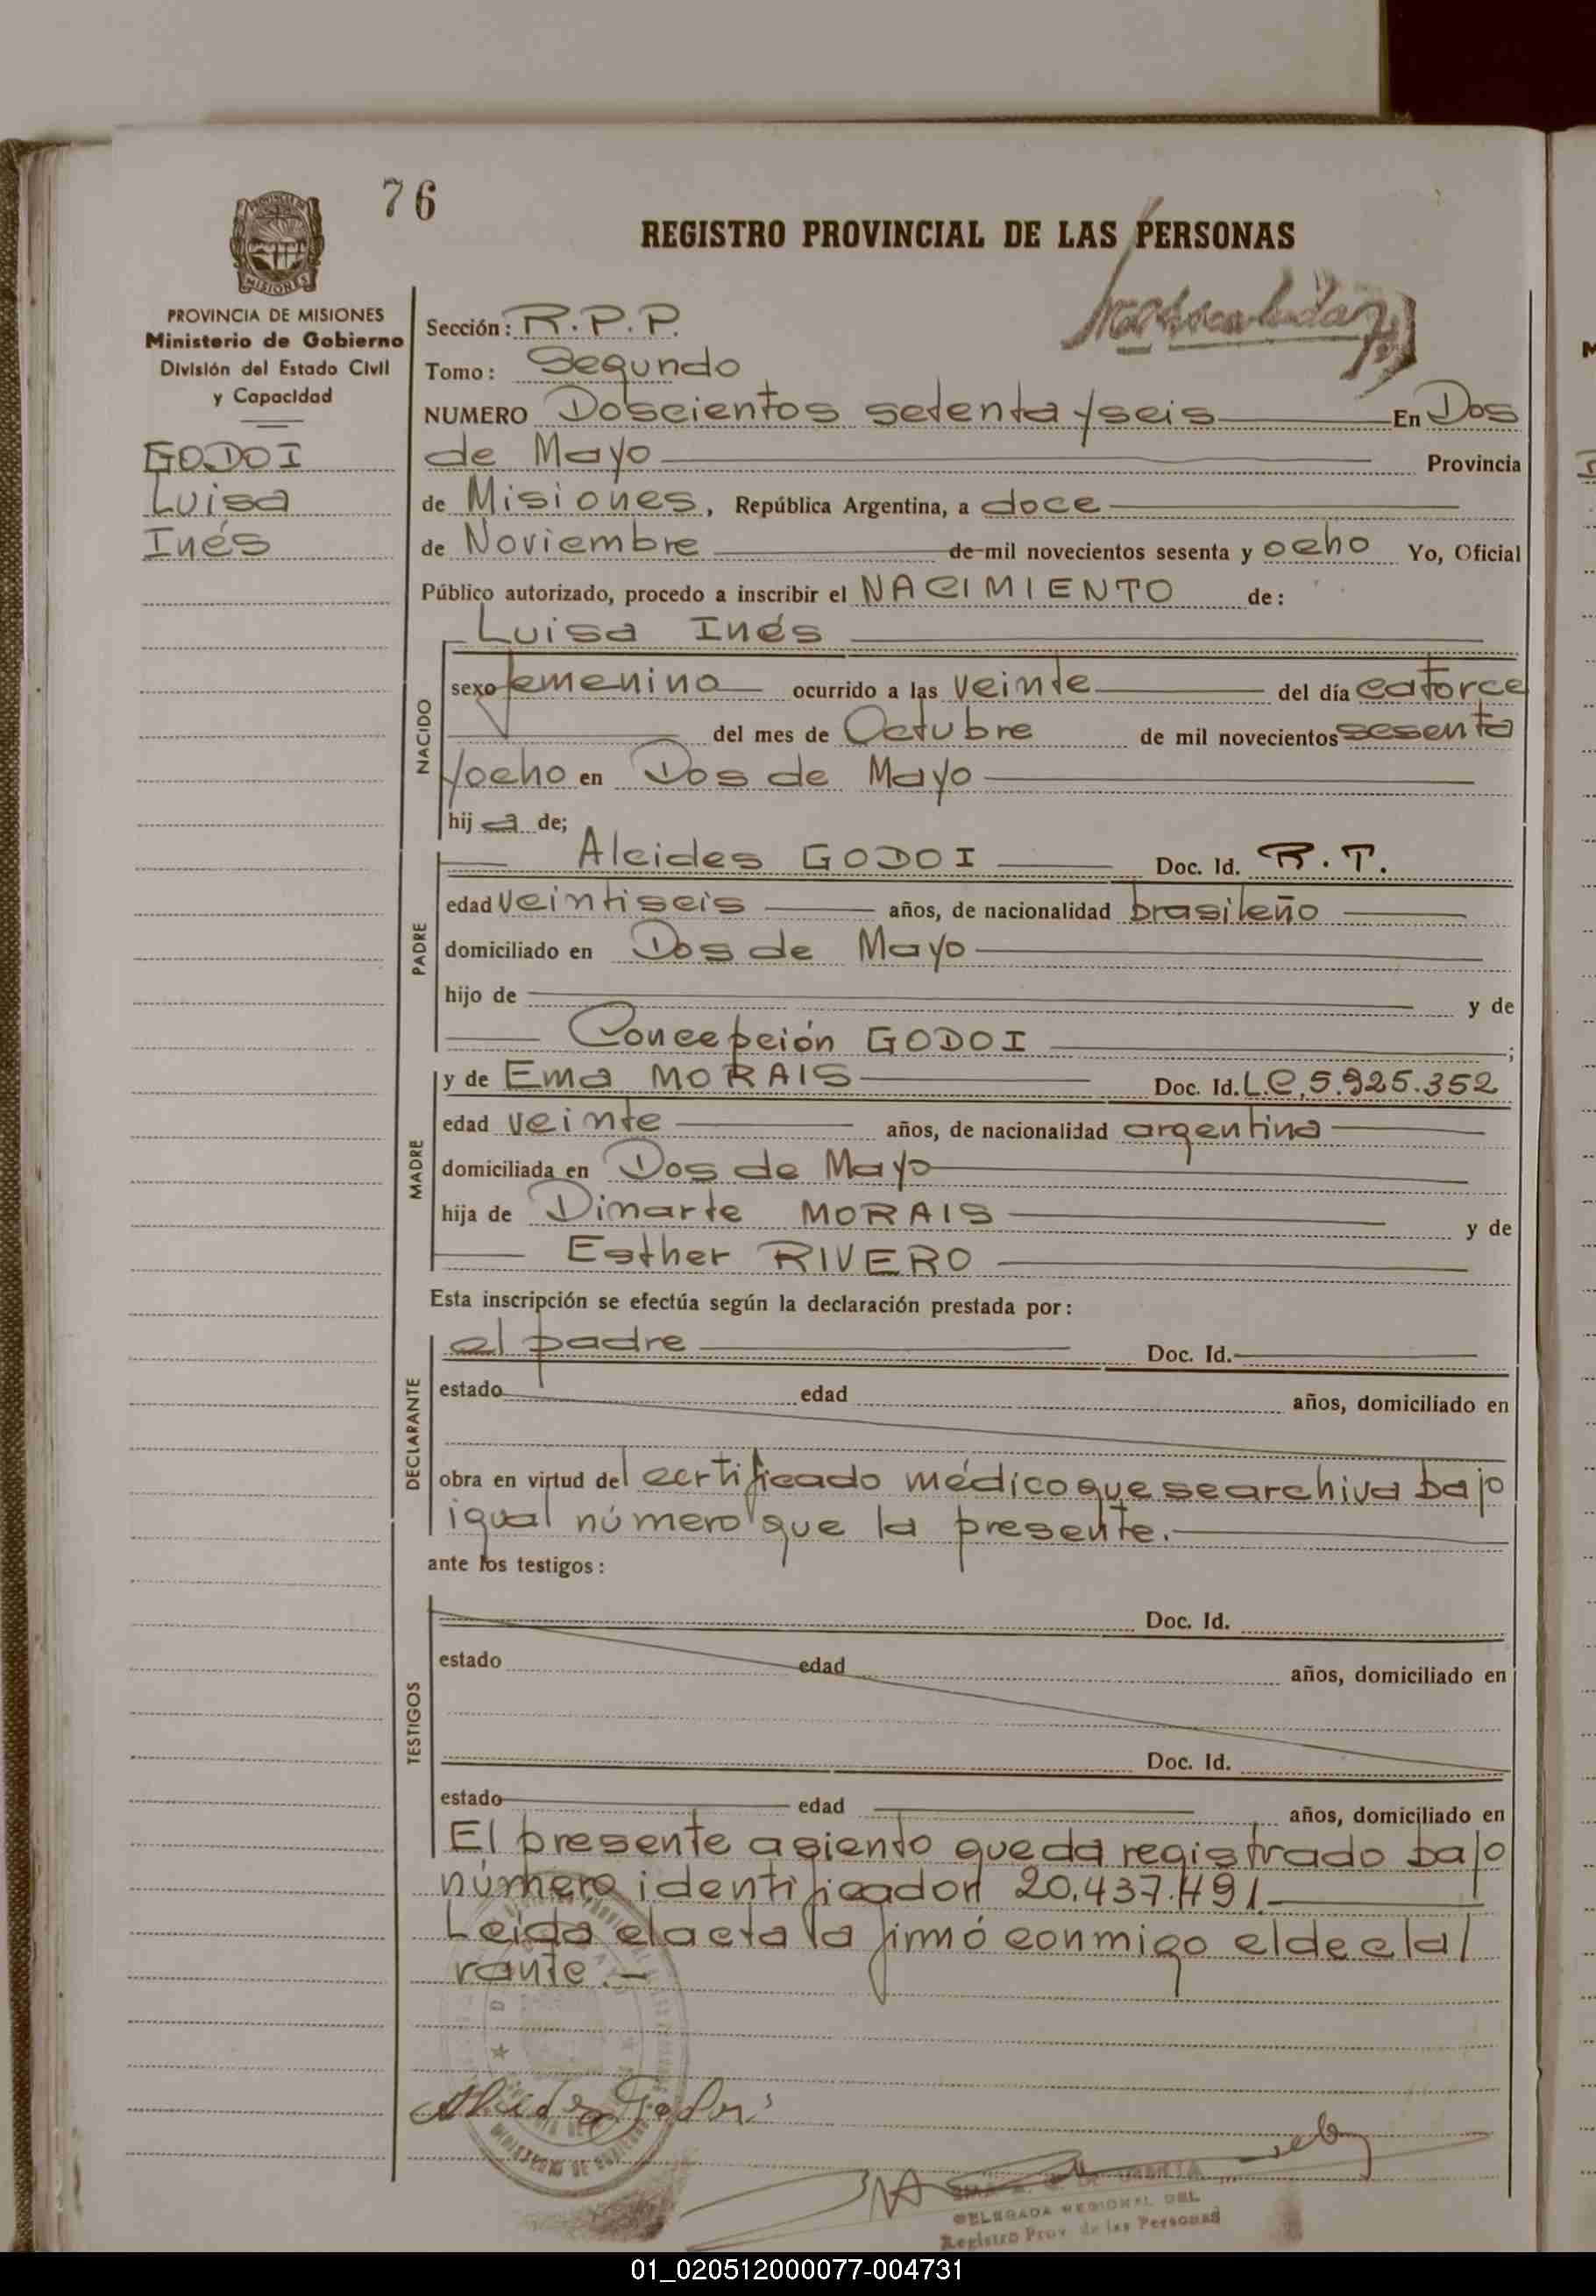 76
REGISTRO PROVINCIAL DE LAS PERSONAS
MISIONES
PROVINCIA DE MISIONES
Ministerio de Gobierno
División del Estado Civil
y Capacidad
GODOI
Luisa
Inés
Sección: R.P.P.
Tomo: Segundo
NUMERO Doscientos setenta y seis En Dos
de Mayo Provincia
de Misiones, República Argentina, a doce
de Noviembre de mil novecientos sesenta y ocho Yo, Oficial
Público autorizado, procedo a inscribir el NACIMIENTO de:
Luisa Inés
NACIDO
sexo femenino ocurrido a las veinte del día catorce
del mes de Octubre de mil novecientos sesenta
y ocho en Dos de Mayo
hij a de;
PADRE
Alcides GODOI Doc. Id. R.T.
edad veintiseis años, de nacionalidad brasileño
domiciliado en Dos de Mayo
hijo de y de
Concepción GODOI ;
MADRE
y de Ema MORAIS Doc. Id. L.C. 5.925.352
edad veinte años, de nacionalidad argentina
domiciliada en Dos de Mayo
hija de Dinarte MORAIS y de
Esther RIVERO
Esta inscripción se efectúa según la declaración prestada por:
DECLARANTE
el padre Doc. Id.
estado edad años, domiciliado en
obra en virtud del certificado médico que se archiva bajo
igual número que la presente.
ante los testigos:
TESTIGOS
Doc. Id.
estado edad años, domiciliado en
Doc. Id.
estado edad años, domiciliado en
El presente asiento queda registrado bajo
número identificador 20.437.491
Leida el acta la firmó conmigo el decla/
rante.-
Alcides Godoi
DELEGADA REGIONAL DEL
Registro Prov. de las Personas
01_020512000077-004731